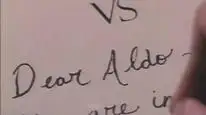 VS
Dear Aldo -
are in